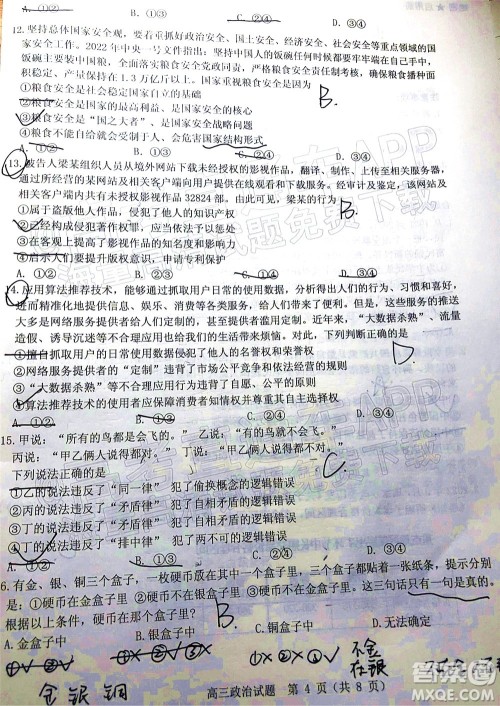 A. ①② B. ①③ C. ②④ D. ③④
12. 坚持总体国家安全观，要着重抓好政治安全、国土安全、经济安全、社会安全等重点领域的国
家安全工作。2022 年中央一号文件指出：坚持中国人的饭碗任何时候都要牢牢端在自己手中
饭碗主要装中国粮，全面落实粮食安全党政同责，严格粮食安全责任制考核，确保粮食播种面
积稳定、产量保持在 1.3 万亿斤以上。这是因为
①粮食安全是社会稳定国家自立的基础
②粮食安全是国家的最高利益、是国家安全的核心
③粮食安全是“国之大者”、是国家安全战略问题
④粮食不能自给就会受制于人、会危害国家结构形式
A. ①② B. ①③ C. ②④ D. ③④
B.
13. 被告人梁某组织人员从境外网站下载未经授权的影视作品，翻译、制作、上传至相关服务器，
通过所经营的某网站及相关客户端向用户提供在线观看和下载服务。经进行鉴定，该网站及
相关客户端内共有未授权影视作品 32824 部。由此可见，梁某的行为
①属于盗版他人作品，侵犯了他人的知识产权
②已经构成侵犯著作权罪，应当受到刑事处罚
③在客观上提高了影视作品的知名度和影响力
④启示人们要提升版权意识，申请专利保护
A. ①② B. ①③ C. ②④ D. ③④
B.
14. 应用算法推荐技术，能够通过抓取用户日常的使用数据，分析得出人们的行为、习惯和喜好，
进而精准化地提供信息、娱乐、消费等各类服务，给人们带来了便利。但在算法的推送下越来越
大多是网络服务提供者给人们定制的，甚至操纵了人们的生活。近年来，“大数据杀熟”、流量
造假、诱导沉迷等不合理应用也影响了人们的正常生活秩序。对此，下列判断正确的是
①擅自抓取用户的日常使用数据侵犯了他人的名誉权和荣誉权
②网络服务提供者的“定制”违背了市场公平竞争和优胜劣汰的市场规则
③“大数据杀熟”等不合理应用行为违背了自愿、公平、诚信的原则
④算法推荐技术的使用者应保障消费者的知情权和自主选择权等合法权益
A. ①② B. ①③ C. ②④ D. ③④
D.
15. 甲说：“所有的鸟都是会飞的。” 乙说：“有的鸟就不会飞。”
丙说：“甲乙俩人说得都对。” 丁说：“甲乙俩人说得都不对。”
下列说法正确的是
①乙的说法违反了“同一律” 犯了偷换概念的逻辑错误
②丙的说法违反了“矛盾律” 犯了自相矛盾的逻辑错误
③丁的说法违反了“矛盾律” 犯了自相矛盾的逻辑错误
④丁的说法违反了“排中律” 犯了两不可的逻辑错误
A. ①② B. ①③ C. ②④ D. ③④
C.
6. 有金、银、铜三个盒子，一枚硬币放在其中一个盒子里。每个盒子上都贴着一张纸条，提示分别
是：①硬币在金盒子里；②硬币在银盒子里；③硬币不在金盒子里。这三句话只有一句是真的。
根据以上条件，硬币在哪个盒子里？
B.
A. 金盒子中 B. 银盒子中 C. 铜盒子中 D. 无法确定
不金
在银
金 银 铜
高三政治试题 第 4 页（共 8 页）
答案圈
MXQE.COM